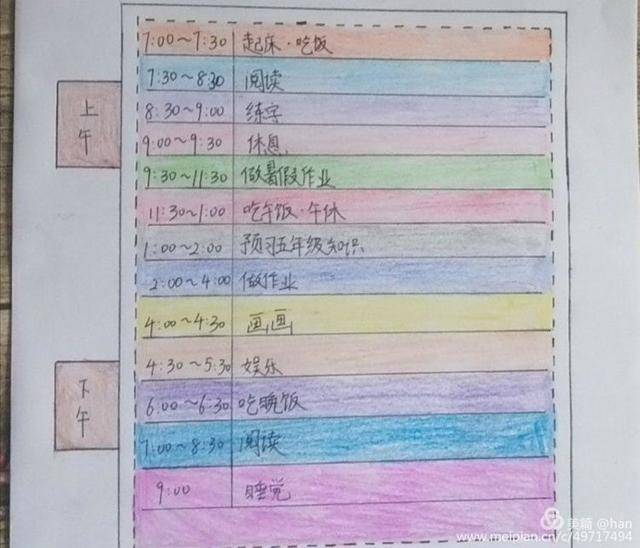 上午
7:00~7:30 起床·吃饭
7:30~8:30 阅读
8:30~9:00 练字
9:00~9:30 休息
9:30~11:30 做暑假作业
11:30~1:00 吃午饭·午休
1:00~2:00 预习五年级知识
2:00~4:00 做作业
4:00~4:30 画画
下午
4:30~5:30 娱乐
6:00~6:30 吃晚饭
7:00~8:30 阅读
9:00 睡觉
美篇 @han
www.meipian.cn/c/49717494